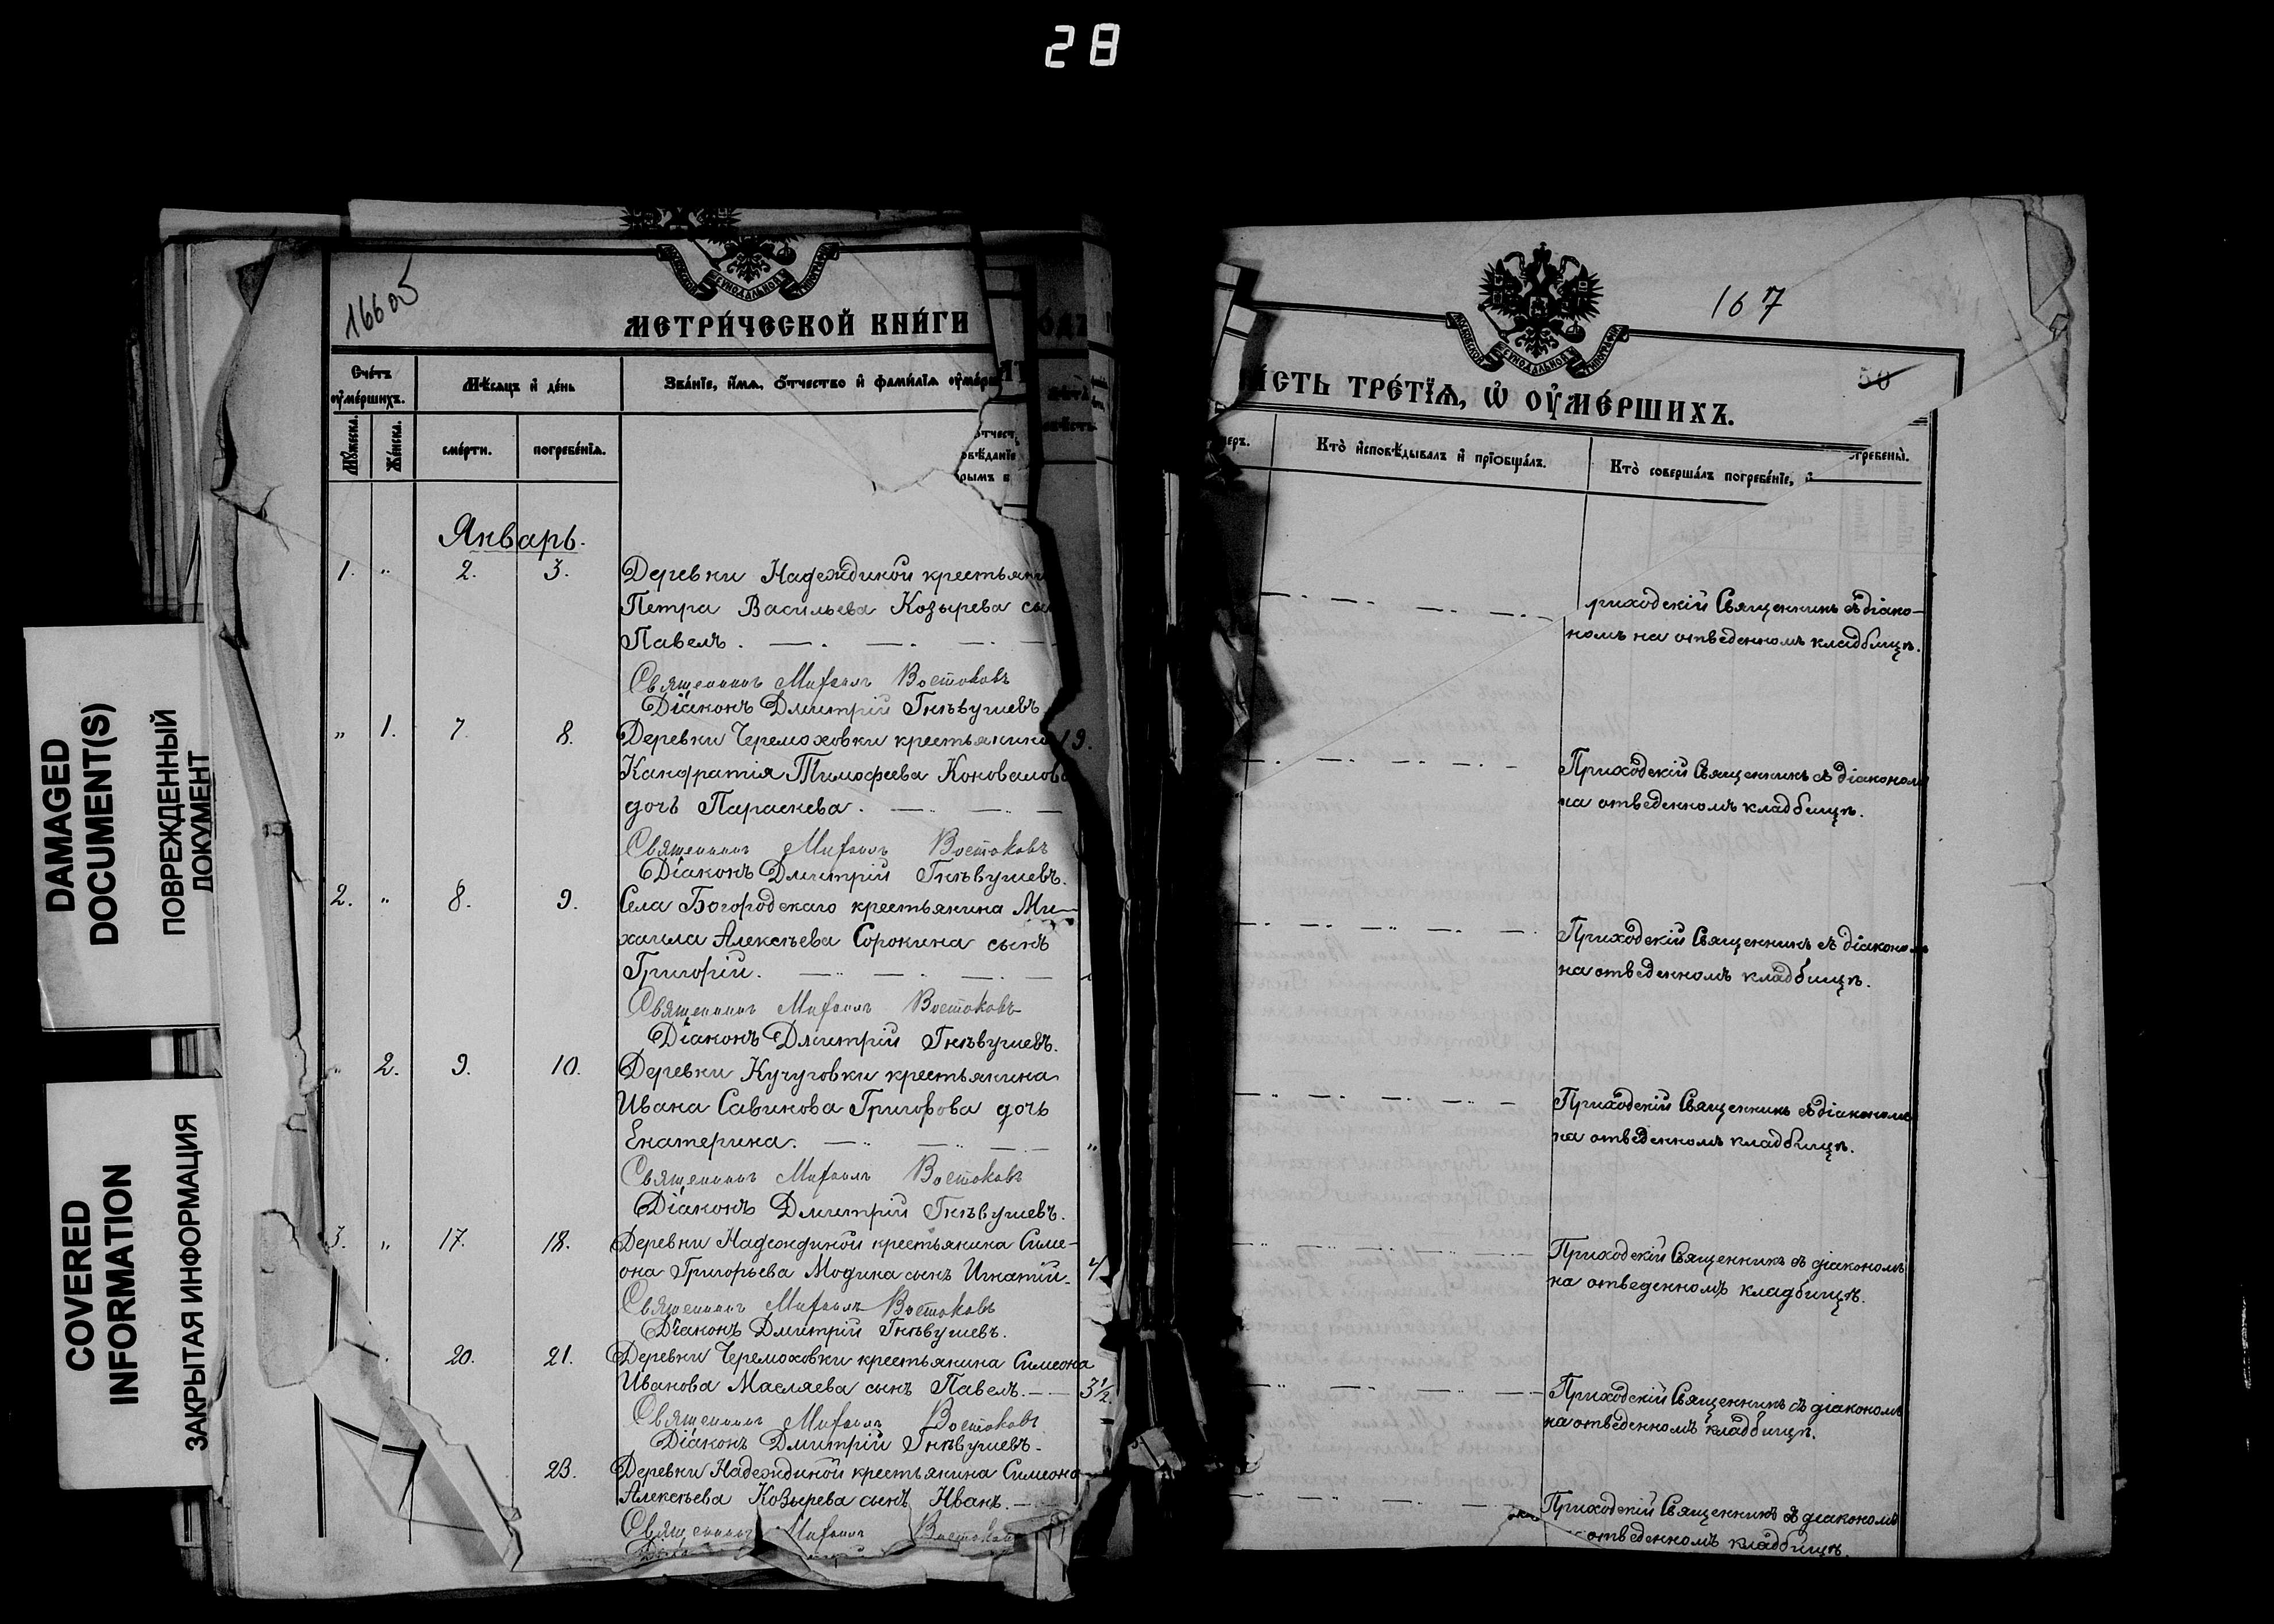 28
DAMAGED
DOCUMENT(S)
ПОВРЕЖДЕННЫЙ
ДОКУМЕНТ
COVERED
INFORMATION
ЗАКРЫТАЯ ИНФОРМАЦИЯ
16605
МЕТРИ́ЧЕСКОЙ КНИ́ГИ
Счетъ
ѹмершихъ.
Мѣсяцъ и день
Званіе, имя, отчество и фамилія
Мужеска.
Женска.
смерти.
погребенія.
Январь.
1. " 2. 3. Деревни Надеждиной
Петра Васильева Козырева
Павелъ.
Священникъ Михаилъ Востоковъ
Діаконъ Дмитрій Гнѣвушевъ
" 1. 7. 8. Деревни Черемоховки крестьянина 19.
Кандратія Тимофеева Коновалова
дочь Параскева.
Священникъ Михаилъ Востоковъ
Діаконъ Дмитрій Гнѣвушевъ.
2. " 8. 9. Села Богородскаго крестьянина Ми-
хаила Алексѣева Сорокина сынъ
Григорій.
Священникъ Михаилъ Востоковъ
Діаконъ Дмитрій Гнѣвушевъ.
" 2. 9. 10. Деревни Кучуговки крестьянина
Ивана Савинова Григорова дочь
Екатерина. "
Священникъ Михаилъ Востоковъ
Діаконъ Дмитрій Гнѣвушевъ.
3. " 17. 18. Деревни Надеждиной крестьянина Симе-
она Григорьева Модина сынъ Игнатій.
Священникъ Михаилъ Востоковъ
Діаконъ Дмитрій Гнѣвушевъ.
20. 21. Деревни Черемоховки крестьянина Симеона
Иванова Масляева сынъ Павелъ. 3½.
Священникъ Михаилъ Востоковъ
Діаконъ Дмитрій Гнѣвушевъ.
23. Деревни Надеждиной крестьянина Симеона
Алексѣева Козырева сынъ Иванъ.
Священникъ Михаилъ Востоковъ
167
50
ТРЕ́ТЇѦ, Ѡ ОУМЕ́РШИХЪ.
Кто исповѣдывалъ и пріобщалъ.
Кто совершалъ погребеніе, и
риходскій Священникъ съ діако-
номъ на отведенномъ кладбищѣ.
Приходскій Священникъ съ діакономъ
на отведенномъ кладбищѣ.
Приходскій Священникъ съ діакономъ
на отведенномъ кладбищѣ.
Приходскій Священникъ съ діакономъ
на отведенномъ кладбищѣ.
Приходскій Священникъ съ діакономъ
на отведенномъ кладбищѣ.
Приходскій Священникъ съ діакономъ
на отведенномъ кладбищѣ.
Приходскій Священникъ съ діакономъ
отведенномъ кладбищѣ.